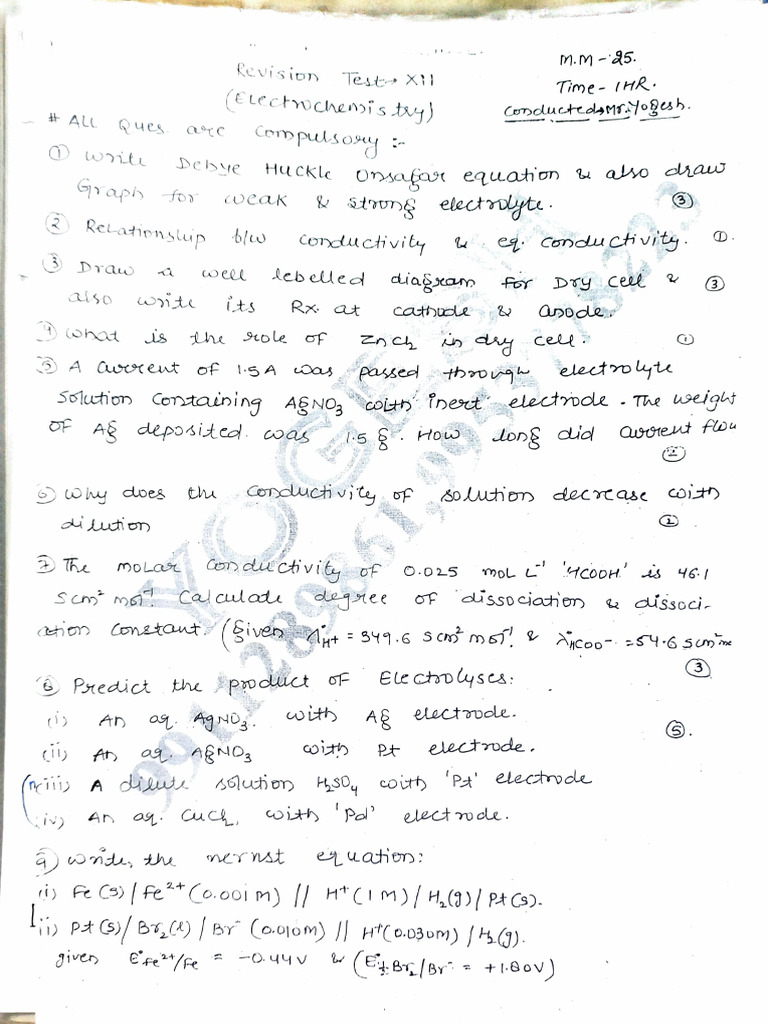 M.M - 25.
Revision Test → XII
Time - 1HR.
(Electrochemistry)
Conducted → Mr. Yogesh.
# All Ques are compulsory :-
① Write Debye Huckle Onsagar equation & also draw
Graph for weak & strong electrolyte. ③
② Relationship b/w conductivity & eq. conductivity. ①.
③ Draw a well labelled diagram for Dry cell & ③
also write its Rx. at cathode & anode.
④ What is the role of ZnCl₂ in dry cell. ①
⑤ A current of 1.5A was passed through electrolyte
solution containing AgNO₃ with inert electrode. The weight
of Ag deposited was 1.5 g. How long did current flow
②
⑥ Why does the conductivity of solution decrease with
dilution ②
⑦ The molar conductivity of 0.025 mol L⁻¹ 'HCOOH' is 46.1
S cm² mol⁻¹. Calculate degree of dissociation & dissoci-
ation constant. (Given λ°H+ = 349.6 S cm² mol⁻¹ & λ°HCOO⁻ = 54.6 S cm²
③
⑧ Predict the product of Electrolyses:
(i) An aq. AgNO₃. with Ag electrode.
⑤.
(ii) An aq. AgNO₃ with Pt electrode.
(iii) A dilute solution H₂SO₄ with 'Pt' electrode
(iv) An aq. CuCl₂ with 'Pd' electrode.
⑨ Write, the nernst equation:
(i) Fe(s)/Fe²⁺(0.001M) // H⁺(1M)/H₂(g)/Pt(s).
ii) Pt(s)/Br₂(l)/Br⁻(0.010M) // H⁺(0.030M)/H₂(g).
given E°Fe²⁺/Fe = -0.44V & (E°½Br₂/Br⁻ = +1.80V)
YOGESH